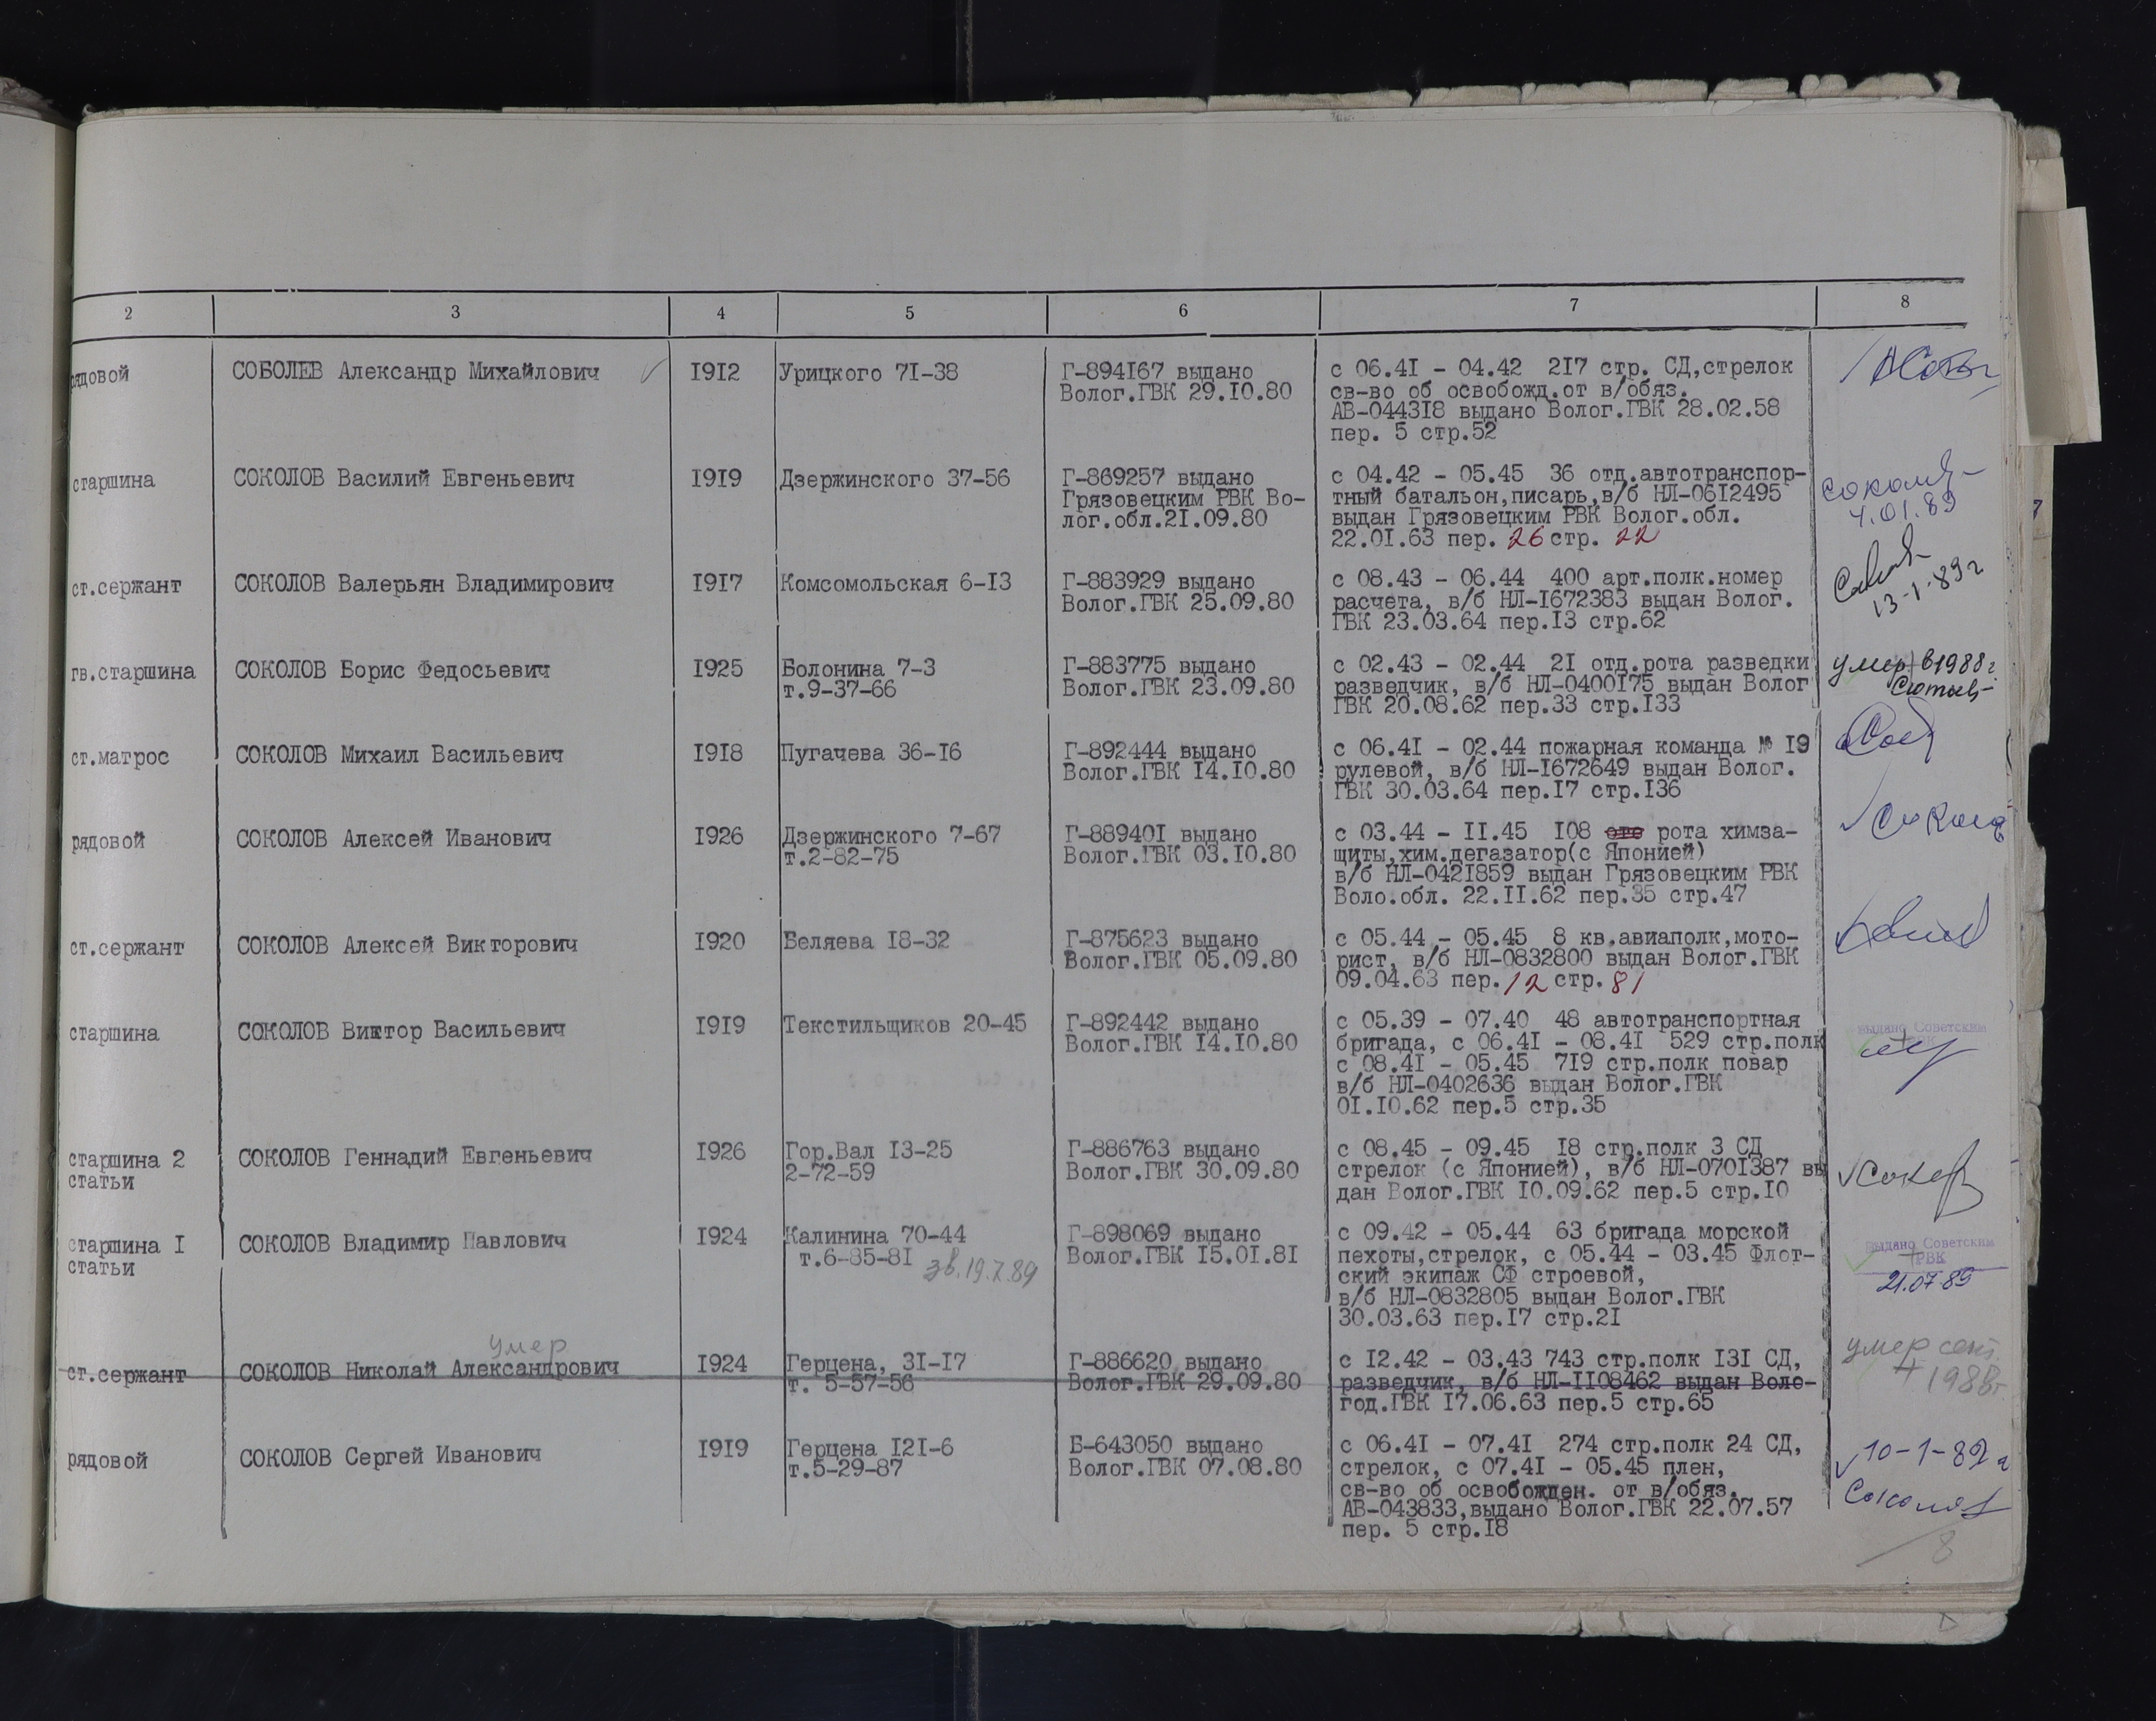 2 3 4 5 6 7 8
рядовой СОБОЛЕВ Александр Михайлович 1912 Урицкого 71-38 Г-894167 выдано с 06.41 - 04.42 217 стр. СД,стрелок
Волог.ГВК 29.10.80 св-во об освобожд.от в/обяз.
АВ-044318 выдано Волог.ГВК 28.02.58
пер. 5 стр.52
старшина СОКОЛОВ Василий Евгеньевич 1919 Дзержинского 37-56 Г-869257 выдано с 04.42 - 05.45 36 отд.автотранспор-
Грязовецким РВК Во- тный батальон,писарь,в/б НЛ-0612495
лог.обл.21.09.80 выдан Грязовецким РВК Волог.обл. 4.01.89
22.01.63 пер. 26 стр. 22
ст.сержант СОКОЛОВ Валерьян Владимирович 1917 Комсомольская 6-13 Г-883929 выдано с 08.43 - 06.44 400 арт.полк.номер
Волог.ГВК 25.09.80 расчета, в/б НЛ-1672383 выдан Волог. 13-1-89г
ГВК 23.03.64 пер.13 стр.62
гв.старшина СОКОЛОВ Борис Федосьевич 1925 Болонина 7-3 Г-883775 выдано с 02.43 - 02.44 21 отд.рота разведки умер в 1988г.
т.9-37-66 Волог.ГВК 23.09.80 разведчик, в/б НЛ-0400175 выдан Волог
ГВК 20.08.62 пер.33 стр.133
ст.матрос СОКОЛОВ Михаил Васильевич 1918 Пугачева 36-16 Г-892444 выдано с 06.41 - 02.44 пожарная команда № 19
Волог.ГВК 14.10.80 рулевой, в/б НЛ-1672649 выдан Волог.
ГВК 30.03.64 пер.17 стр.136
рядовой СОКОЛОВ Алексей Иванович 1926 Дзержинского 7-67 Г-889401 выдано с 03.44 - 11.45 108 рота химза-
т.2-82-75 Волог.ГВК 03.10.80 щиты,хим.дегазатор(с Японией)
в/б НЛ-0421859 выдан Грязовецким РВК
Воло.обл. 22.11.62 пер.35 стр.47
ст.сержант СОКОЛОВ Алексей Викторович 1920 Беляева 18-32 Г-875623 выдано с 05.44 - 05.45 8 кв.авиаполк,мото-
Волог.ГВК 05.09.80 рист, в/б НЛ-0832800 выдан Волог.ГВК
09.04.63 пер. 12 стр. 81
старшина СОКОЛОВ Виктор Васильевич 1919 Текстильщиков 20-45 Г-892442 выдано с 05.39 - 07.40 48 автотранспортная выдано Советским
Волог.ГВК 14.10.80 бригада, с 06.41 - 08.41 529 стр.полк
с 08.41 - 05.45 719 стр.полк повар
в/б НЛ-0402636 выдан Волог.ГВК
01.10.62 пер.5 стр.35
старшина 2 СОКОЛОВ Геннадий Евгеньевич 1926 Гор.Вал 13-25 Г-886763 выдано с 08.45 - 09.45 18 стр.полк 3 СД
статьи 2-72-59 Волог.ГВК 30.09.80 стрелок (с Японией), в/б НЛ-0701387 вы
дан Волог.ГВК 10.09.62 пер.5 стр.10
старшина 1 СОКОЛОВ Владимир Павлович 1924 Калинина 70-44 Г-898069 выдано с 09.42 - 05.44 63 бригада морской выдано Советским
статьи т.6-85-81 зв.19.7.89 Волог.ГВК 15.01.81 пехоты,стрелок, с 05.44 - 03.45 Флот- РВК
ский экипаж СФ строевой, 21.07.89
в/б НЛ-0832805 выдан Волог.ГВК
30.03.63 пер.17 стр.21
умер
ст.сержант СОКОЛОВ Николай Александрович 1924 Герцена, 31-17 Г-886620 выдано с 12.42 - 03.43 743 стр.полк 131 СД, умер сент.
т. 5-57-56 Волог.ГВК 29.09.80 разведчик, в/б НЛ-1108462 выдан Воло- 1988г
год.ГВК 17.06.63 пер.5 стр.65
рядовой СОКОЛОВ Сергей Иванович 1919 Герцена 121-6 Б-643050 выдано с 06.41 - 07.41 274 стр.полк 24 СД, 10-1-89г
т.5-29-87 Волог.ГВК 07.08.80 стрелок, с 07.41 - 05.45 плен,
св-во об освобожден. от в/обяз.
АВ-043833,выдано Волог.ГВК 22.07.57
пер. 5 стр.18
8